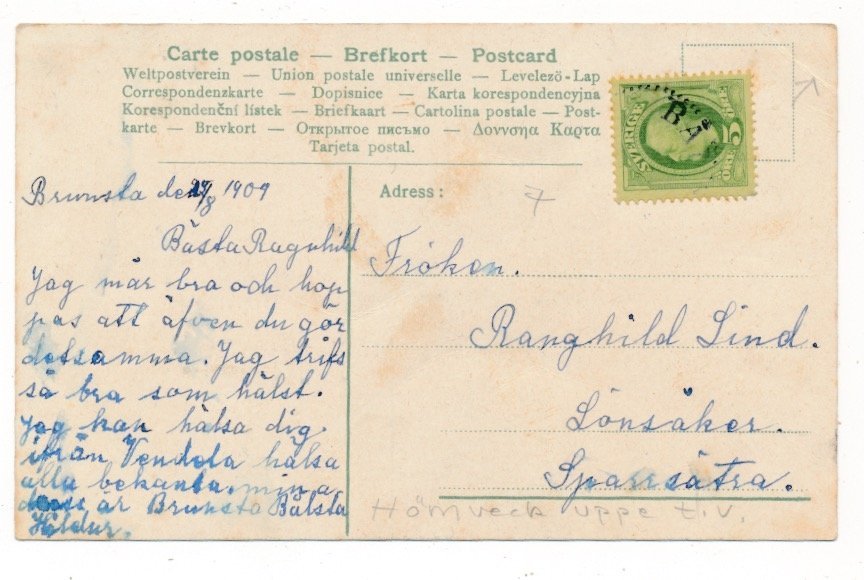 Carte postale — Brefkort — Postcard
Weltpostverein — Union postale universelle — Levelező-Lap
Correspondenzkarte — Dopisnice — Karta korespondencyjna
Korespondenční lístek — Briefkaart — Cartolina postale — Post-
karte — Brevkort — Открытое письмо — Δοννσηα Καρτα
Tarjeta postal.
SVERIGE
5
BA
Brunsta den 29/8 1909
Bästa Ragnhild
Jag mår bra och hop
pas att äfven du gör
detsamma. Jag trifs
så bra som hälst.
Jag kan hälsa dig
ifrån Vendela hälsa
alla bekanta. min a
är Brunsta Bälsta
Hildur.
Adress:
7
Fröken.
Ranghild Lind.
Lönsåker.
Sparrsätra.
Hörnveck uppe t.v.